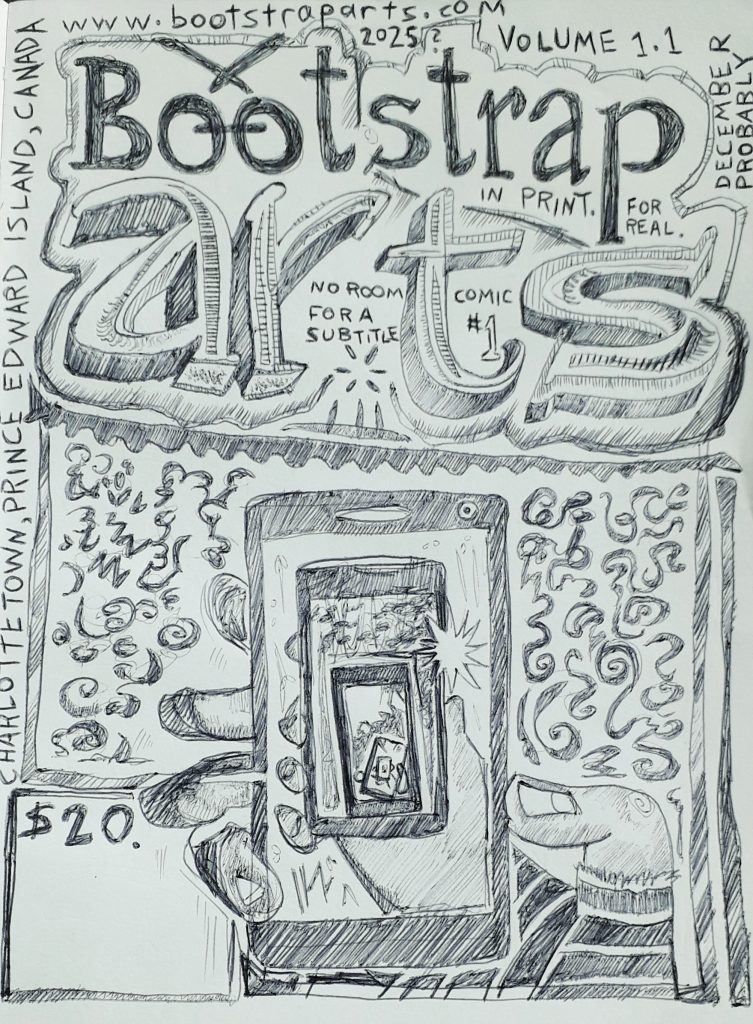 www.bootstraparts.com
2025?
VOLUME 1.1
DECEMBER
PROBABLY
Bootstrap
arts
IN PRINT.
FOR
REAL.
NO ROOM
FOR A
SUBTITLE
COMIC
#1
CHARLOTTETOWN, PRINCE EDWARD ISLAND, CANADA
$20.